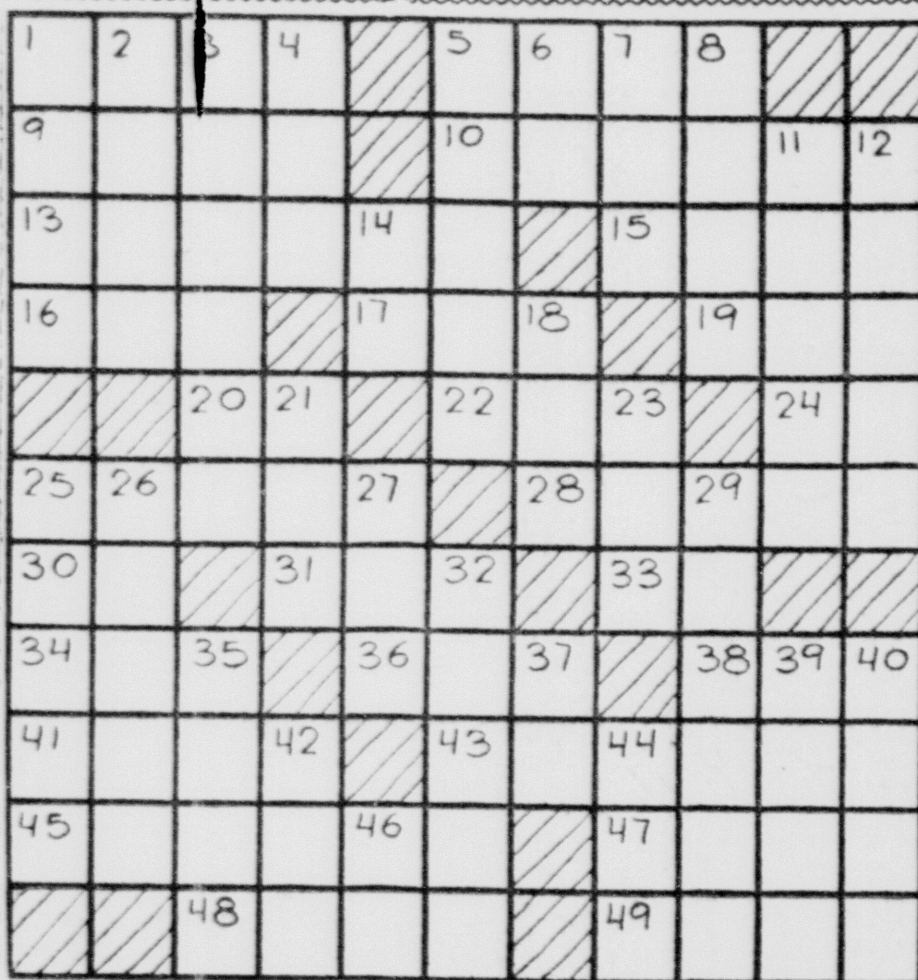 1 2 3 4 5 6 7 8
9 10 11 12
13 14 15
16 17 18 19
20 21 22 23 24
25 26 27 28 29
30 31 32 33
34 35 36 37 38 39 40
41 42 43 44
45 46 47
48 49